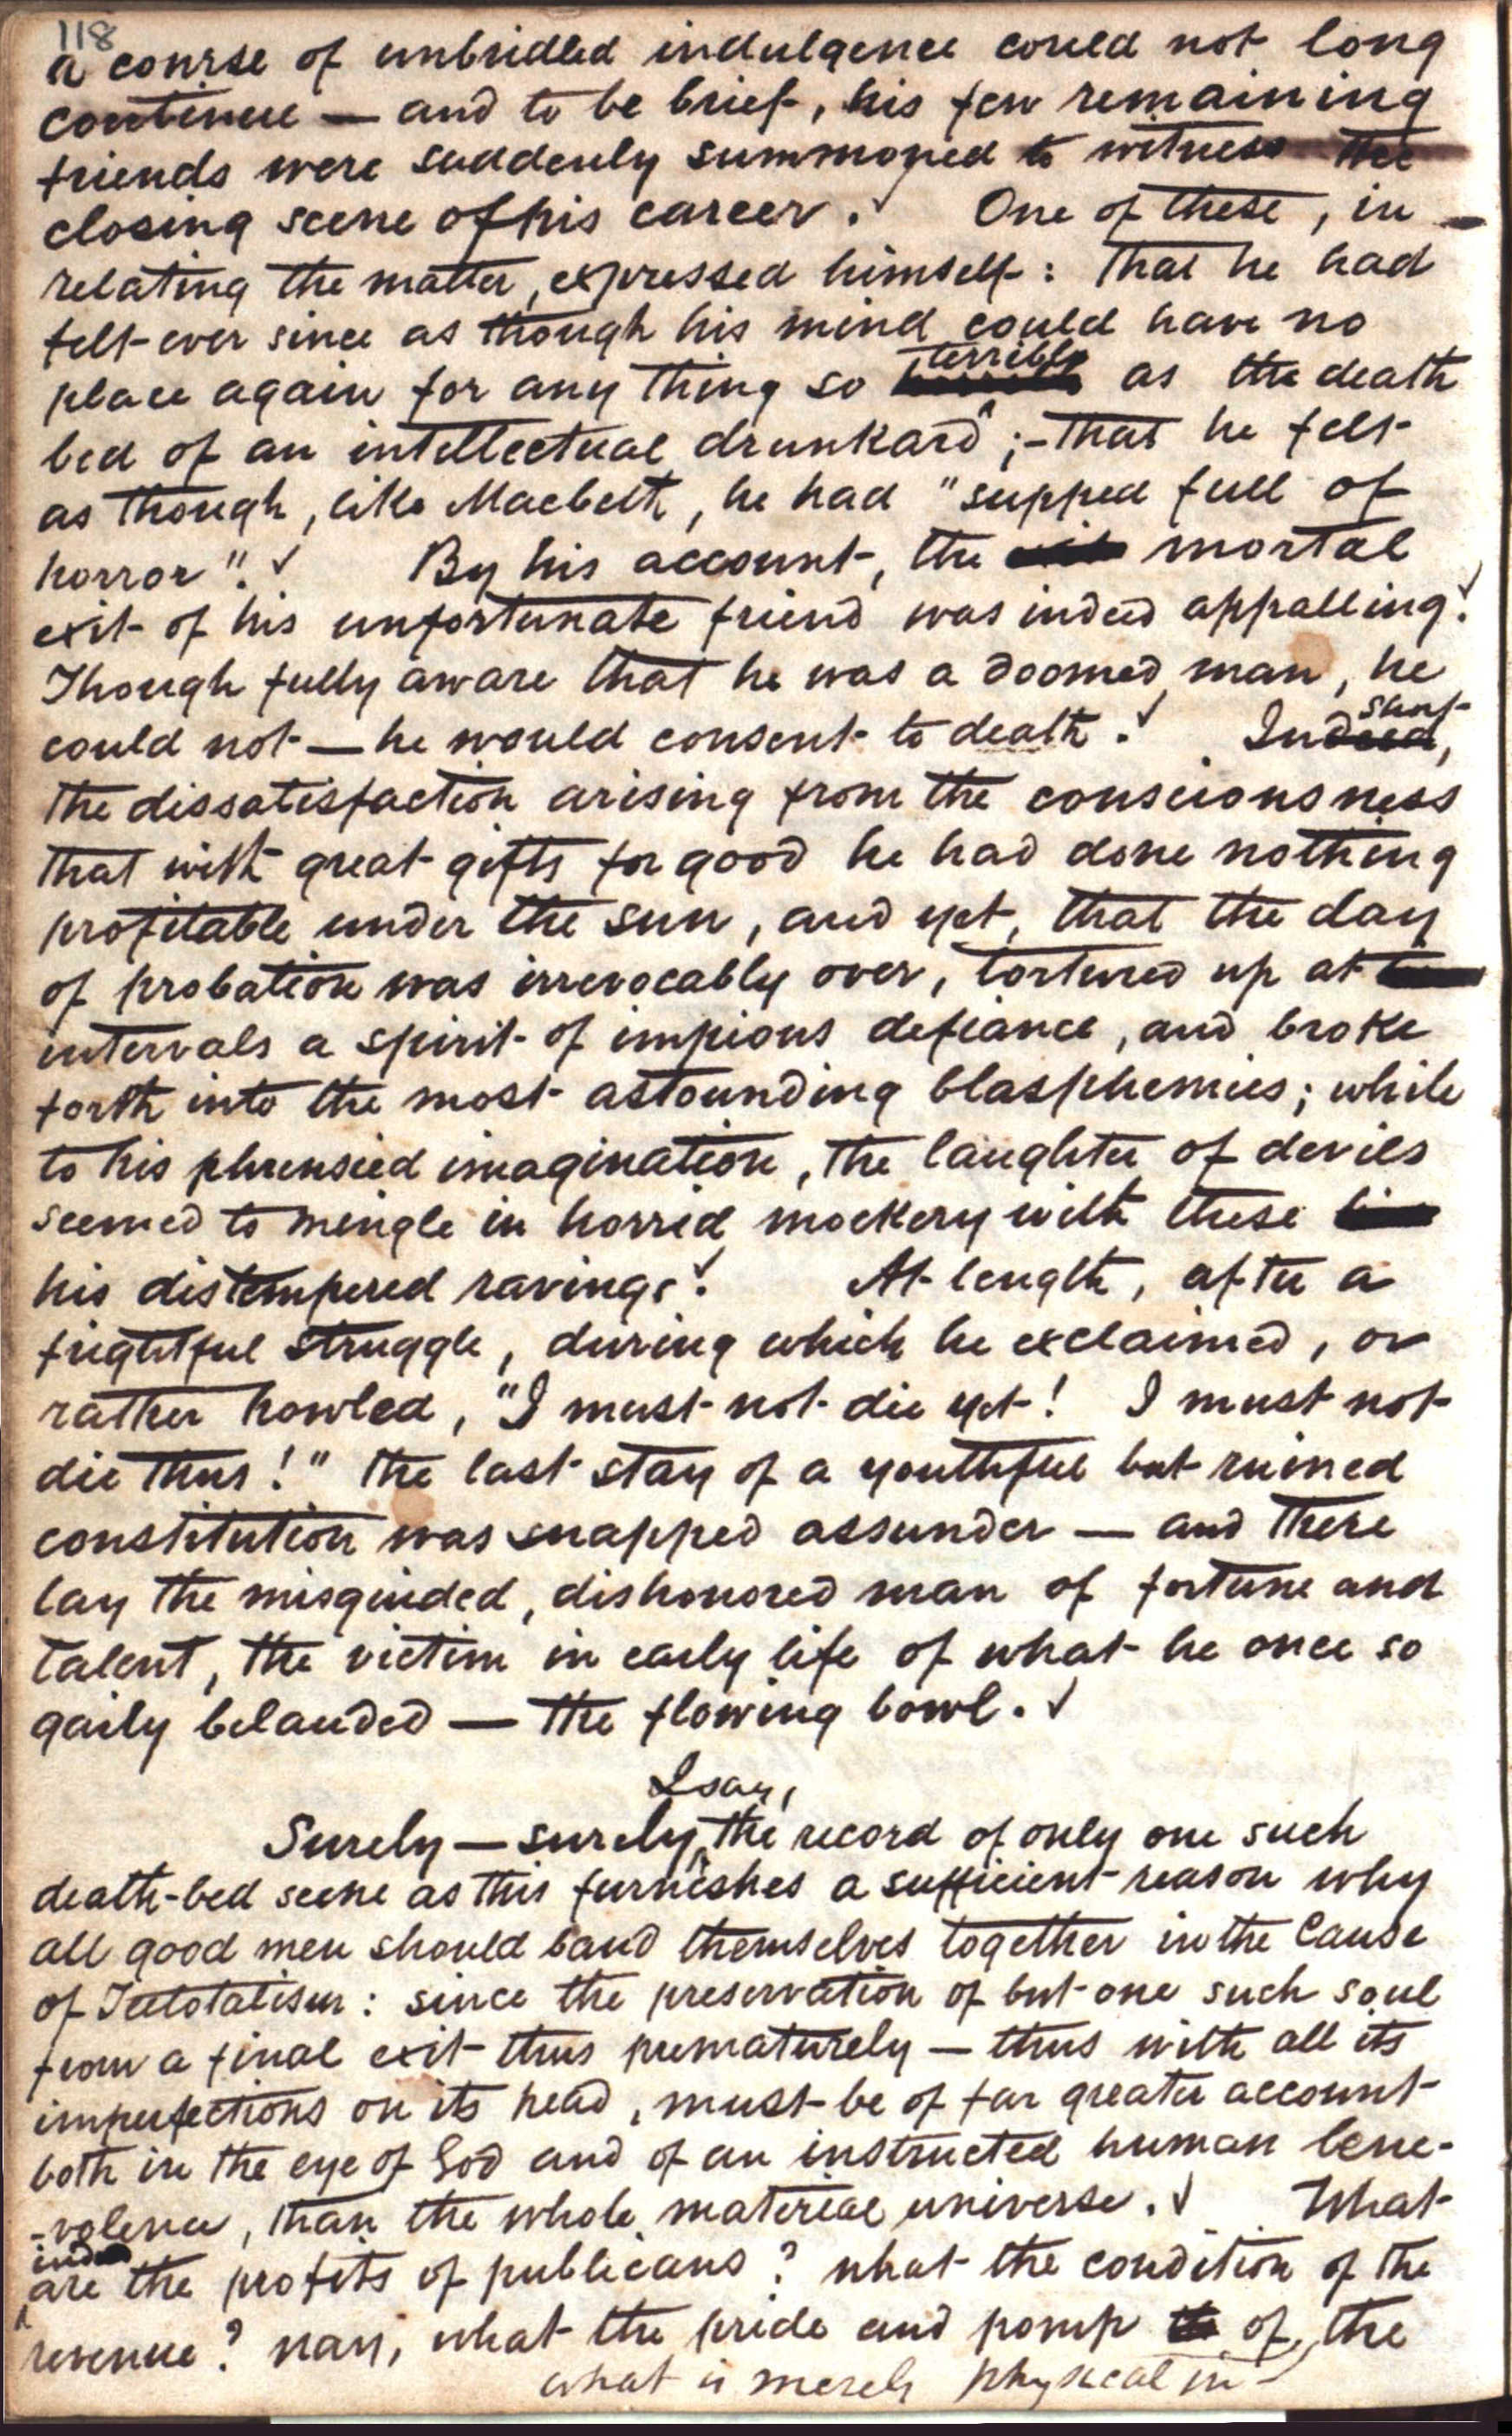 118
a course of unbridled indulgence could not long
continue — and to be brief, his few remaining
friends were suddenly summoned to witness the
closing scene of his career. One of these, in
relating the matter, expressed himself: That he had
felt ever since as though his mind could have no
terrible
place again for any thing so as the death
bed of an intellectual drunkard; - that he felt
as though, like Macbeth, he had "supped full of
horror". ✓ By his account, the mortal
exit of his unfortunate friend was indeed appalling. ✓
Though fully aware that he was a doomed man, he
could not — he would consent to death. ✓ Indeed,
the dissatisfaction arising from the consciousness
that with great gifts for good he had done nothing
profitable under the sun, and yet, that the day
of probation was irrevocably over, tortured up at
intervals a spirit of impious defiance, and broke
forth into the most astounding blasphemies; while
to his phrensied imagination, the laughter of devils
seemed to mingle in horrid mockery with these
his distempered ravings. ✓ At length, after a
frightful struggle, during which he exclaimed, or
rather howled, "I must not die yet! I must not
die thus!" the last stay of a youthful but ruined
constitution was snapped assunder — and there
lay the misguided, dishonored man of fortune and
talent, the victim in early life of what he once so
gaily belauded — the flowing bowl. ✓
I say,
Surely — surely, the record of only one such
death-bed scene as this furnishes a sufficient reason why
all good men should band themselves together in the Cause
of Teetotalism: since the preservation of but one such soul
from a final exit thus prematurely — thus with all its
imperfections on its head, must be of far greater account
both in the eye of God and of an instructed human bene-
-volence, than the whole material universe. ✓ What
are the profits of publicans? what the condition of the
revenue? nay, what the pride and pomp of the
what is merely physical in